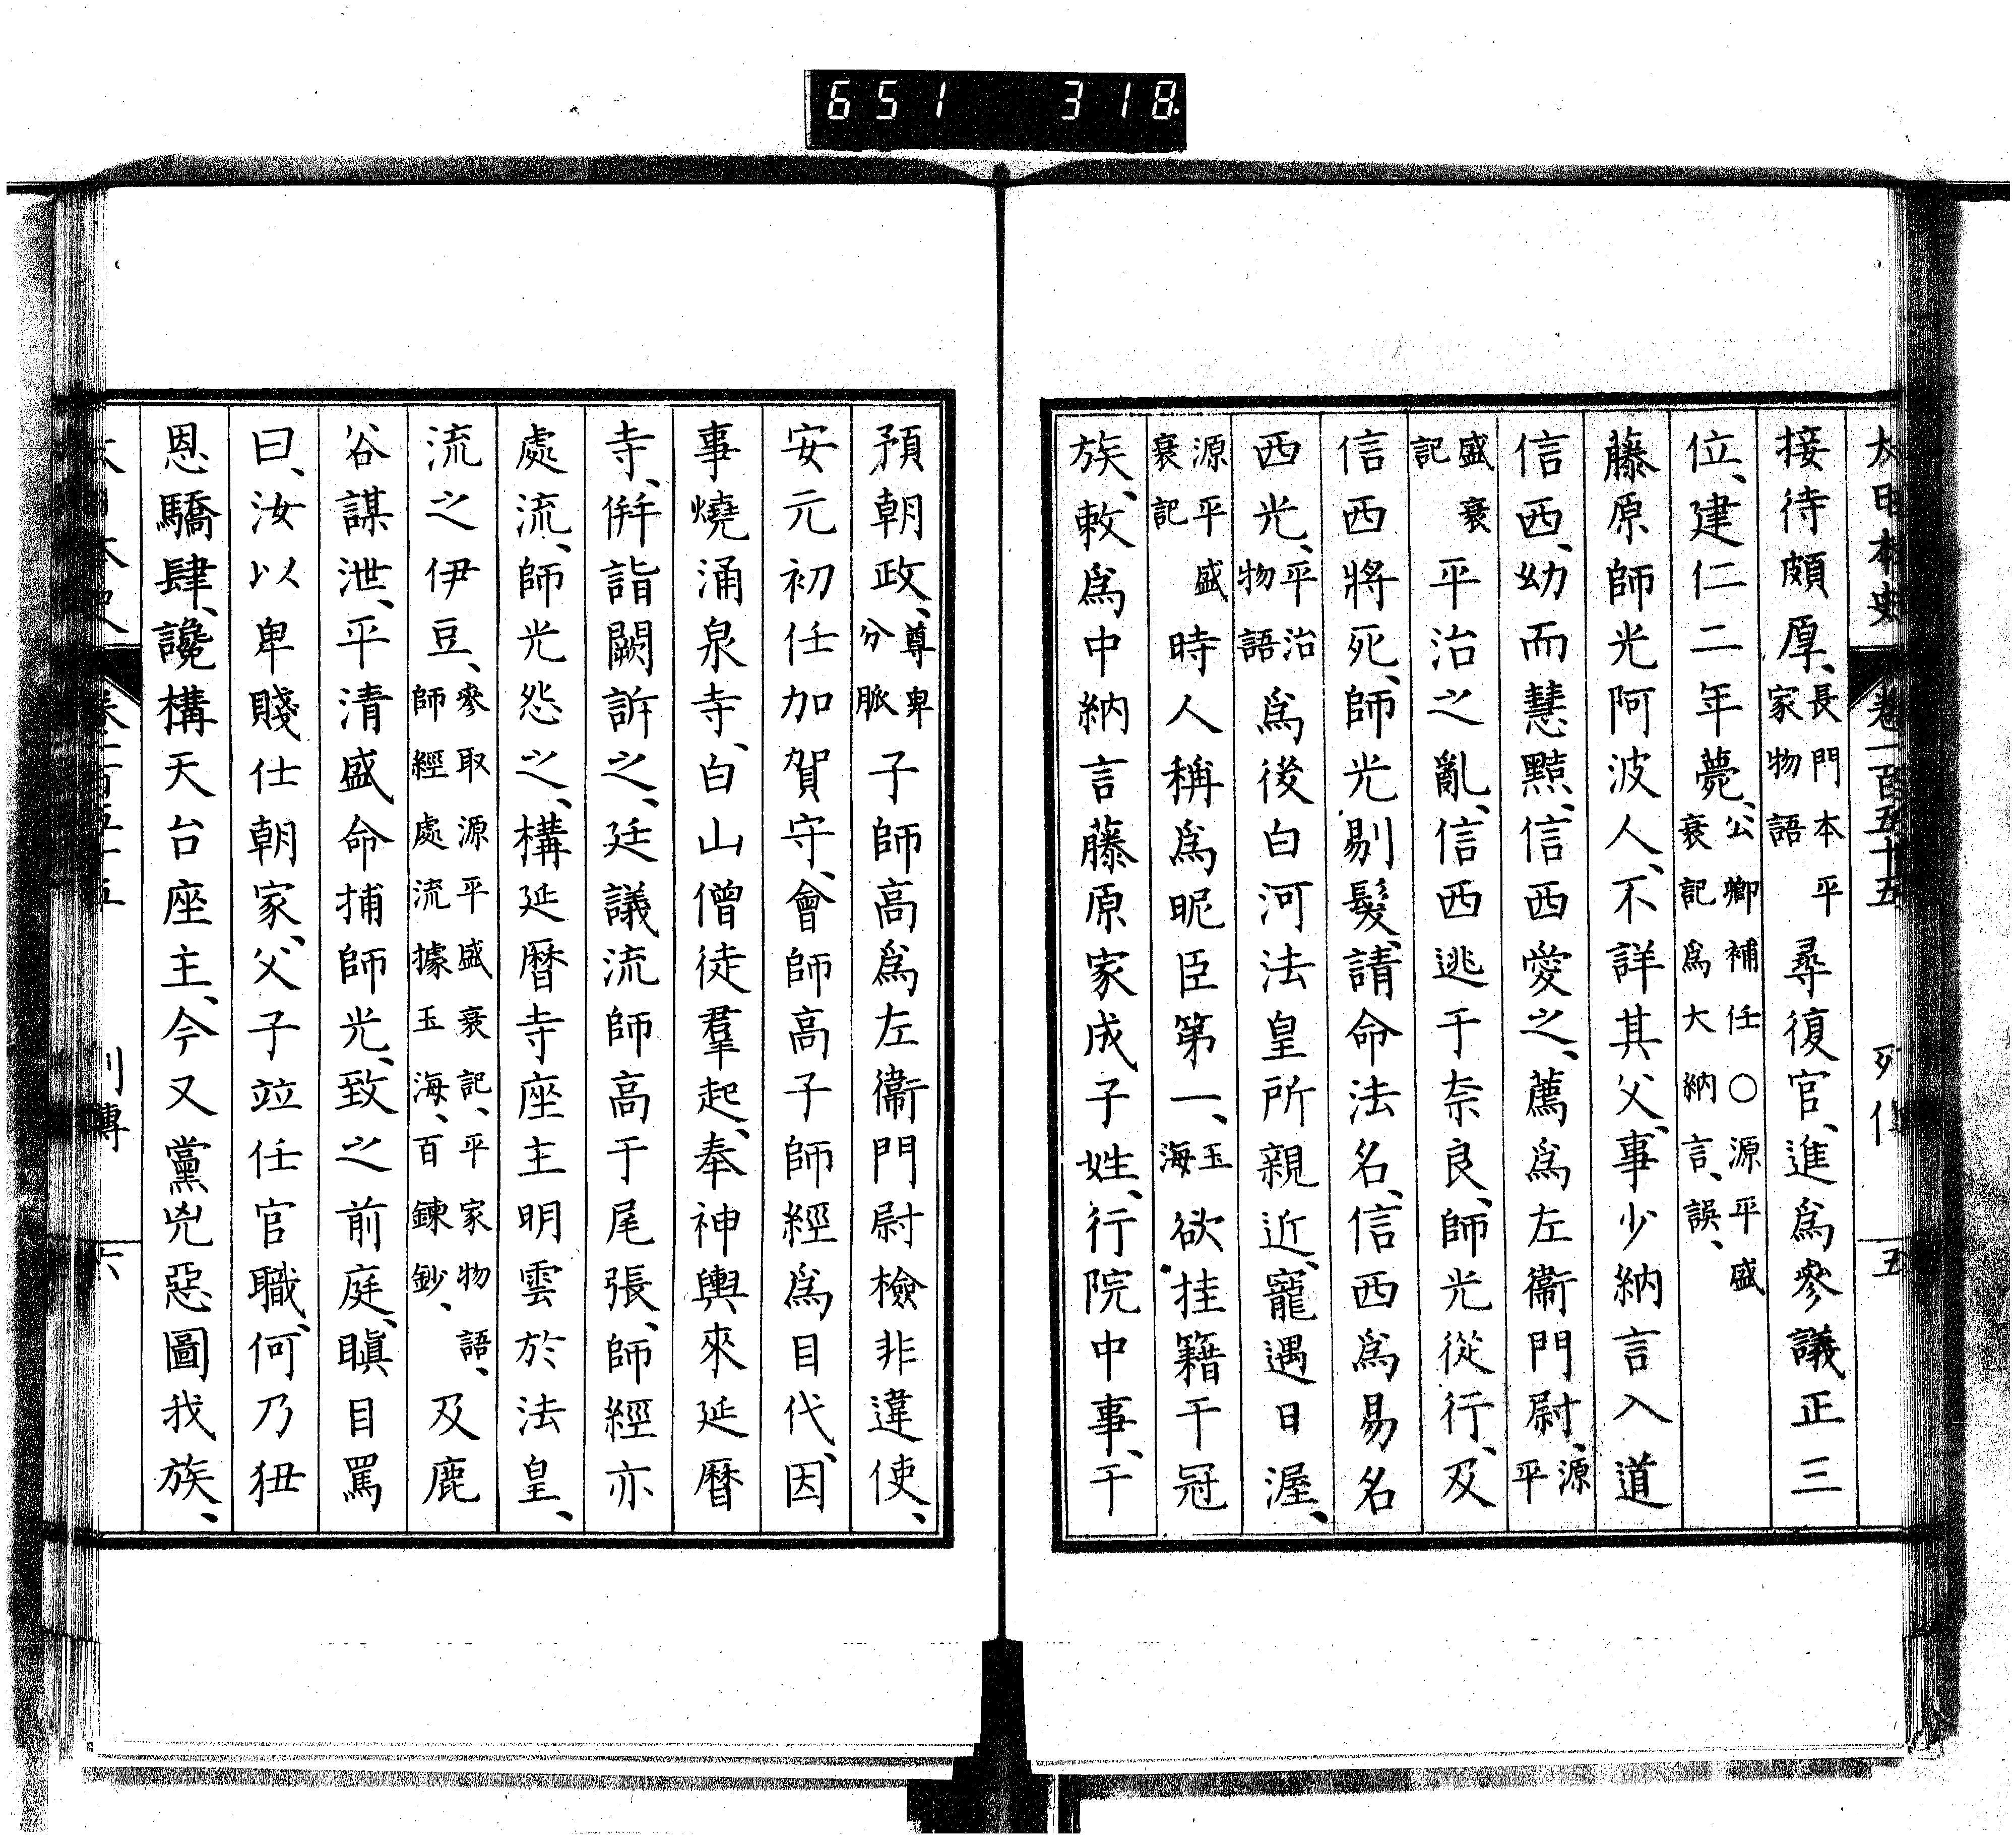 651 318
大日本史 卷一百五十五 列傳 五
接待頗厚、長門本平家物語尋復官、進爲參議正三
位、建仁二年薨、公卿補任○源平盛衰記爲大納言、誤、
藤原師光阿波人、不詳其父、事少納言入道
信西、幼而慧黠、信西愛之、薦爲左衞門尉、源平
盛衰記平治之亂、信西逃于奈良、師光從行、及
信西將死、師光剔髮、請命法名、信西爲易名
西光、平治物語爲後白河法皇所親近、寵遇日渥、
源平盛衰記時人稱爲昵臣第一、玉海欲挂籍干冠
族、敕爲中納言藤原家成子姓、行院中事、干
預朝政、尊卑分脈子師高爲左衞門尉檢非違使、
安元初任加賀守、會師高子師經爲目代、因
事燒涌泉寺、白山僧徒羣起、奉神輿來延曆
寺、倂詣闕訴之、廷議流師高于尾張、師經亦
處流、師光怨之、構延曆寺座主明雲於法皇、
流之伊豆、參取源平盛衰記、平家物語、師經處流據玉海、百鍊鈔、及鹿
谷謀泄、平清盛命捕師光、致之前庭、瞋目罵
曰、汝以卑賤仕朝家、父子竝任官職、何乃狃
恩驕肆、讒構天台座主、今又黨兇惡圖我族、
本史 卷一百五十五 列傳 六